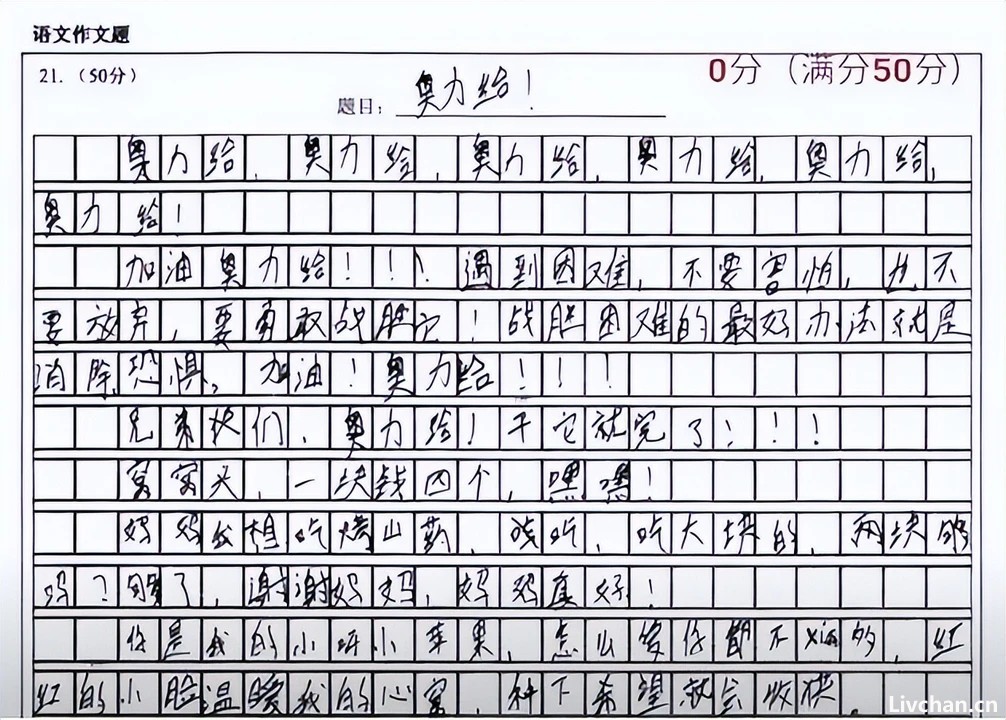 语文作文题
21.（50分）
0分（满分50分）
题目：奥力给！
奥力给，奥力给，奥力给，奥力给，奥力给，
奥力给！
加油奥力给！！！遇到困难，不要害怕，也不
要放弃，要勇敢战胜它！战胜困难的最好办法就是
消除恐惧，加油！奥力给！！！
兄弟们，奥力给！干它就完了！！！
窝窝头，一块钱四个，嘿嘿！
妈妈我想吃烤山药，吃，吃大块的，两块够
吗？够了，谢谢妈妈，妈妈真好！
你是我的小呀小苹果，怎么爱你都不xian的，红
红的小脸温暖我的心窝，种下希望就会收获
Livchan.cn